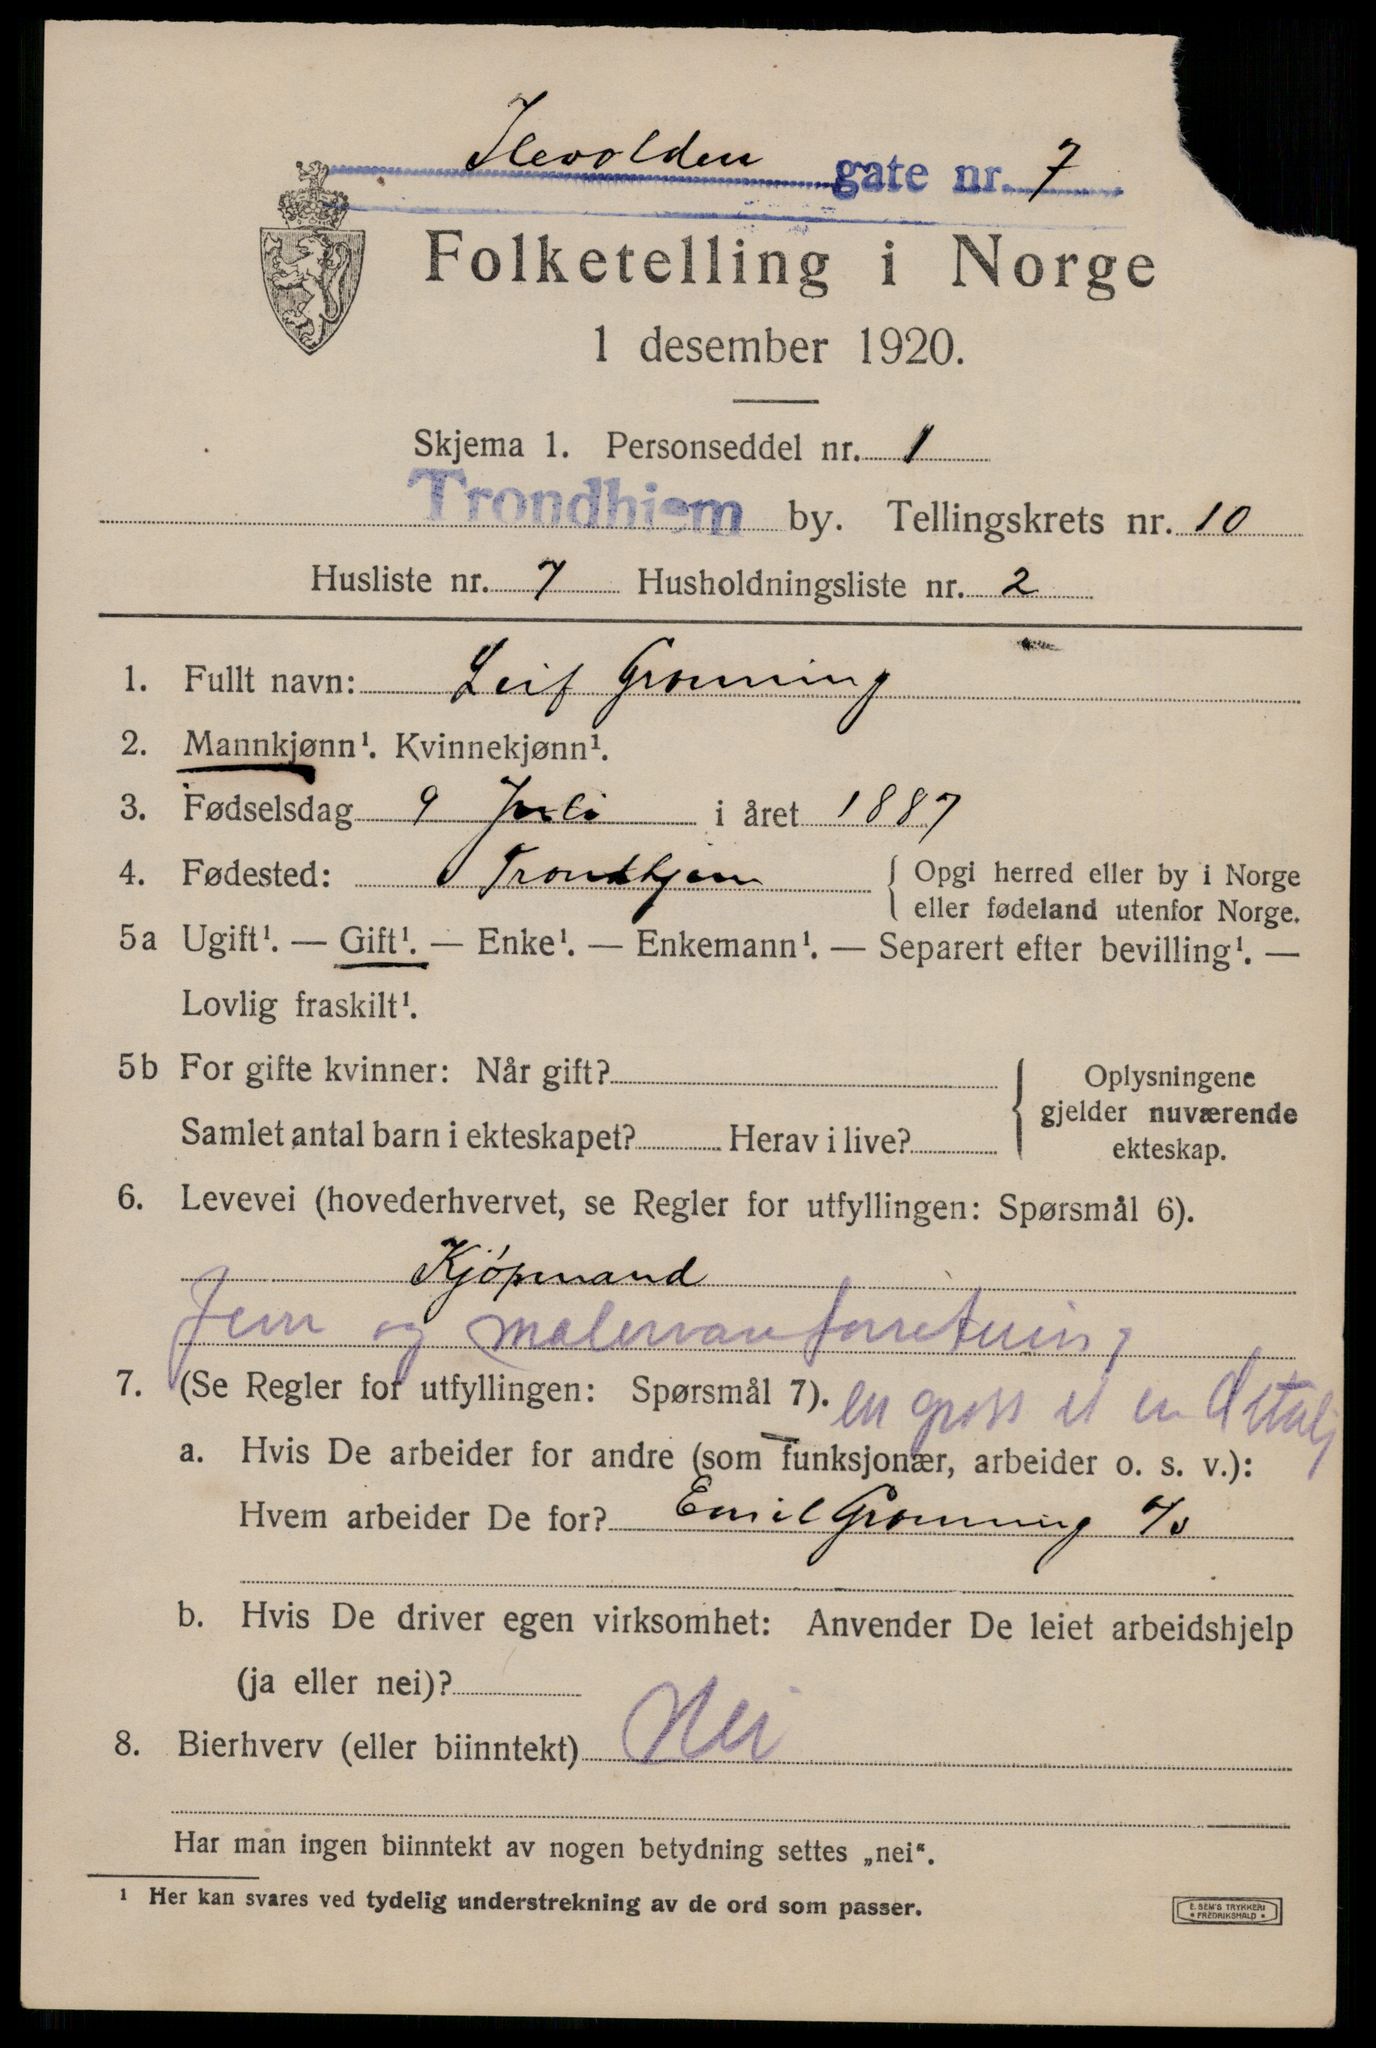 Ilevolden gate nr. 7
Folketelling i Norge
1 desember 1920.
Skjema 1. Personseddel nr. 1
Trondhjem by. Tellingskrets nr. 10
Husliste nr. 7 Husholdningsliste nr. 2
1. Fullt navn: Leif Grønning
2. Mannkjønn¹. Kvinnekjønn¹.
3. Fødselsdag 9 Juli i året 1887
4. Fødested: Trondhjem { Opgi herred eller by i Norge
eller fødeland utenfor Norge.
5a Ugift¹. — Gift¹. — Enke¹. — Enkemann¹. — Separert efter bevilling¹. —
Lovlig fraskilt¹.
5b For gifte kvinner: Når gift?
Samlet antal barn i ekteskapet? Herav i live?
{ Oplysningene
gjelder nuværende
ekteskap.
6. Levevei (hovederhvervet, se Regler for utfyllingen: Spørsmål 6).
Kjøpmand
Jern og malervareforretning
7. (Se Regler for utfyllingen: Spørsmål 7). en gross et en detalj
a. Hvis De arbeider for andre (som funksjonær, arbeider o. s. v.):
Hvem arbeider De for? Emil Grønning A/S
b. Hvis De driver egen virksomhet: Anvender De leiet arbeidshjelp
(ja eller nei)?
8. Bierhverv (eller biinntekt) Nei
Har man ingen biinntekt av nogen betydning settes „nei“.
¹ Her kan svares ved tydelig understrekning av de ord som passer.
E. SEM'S TRYKKERI
* FREDRIKSHALD *